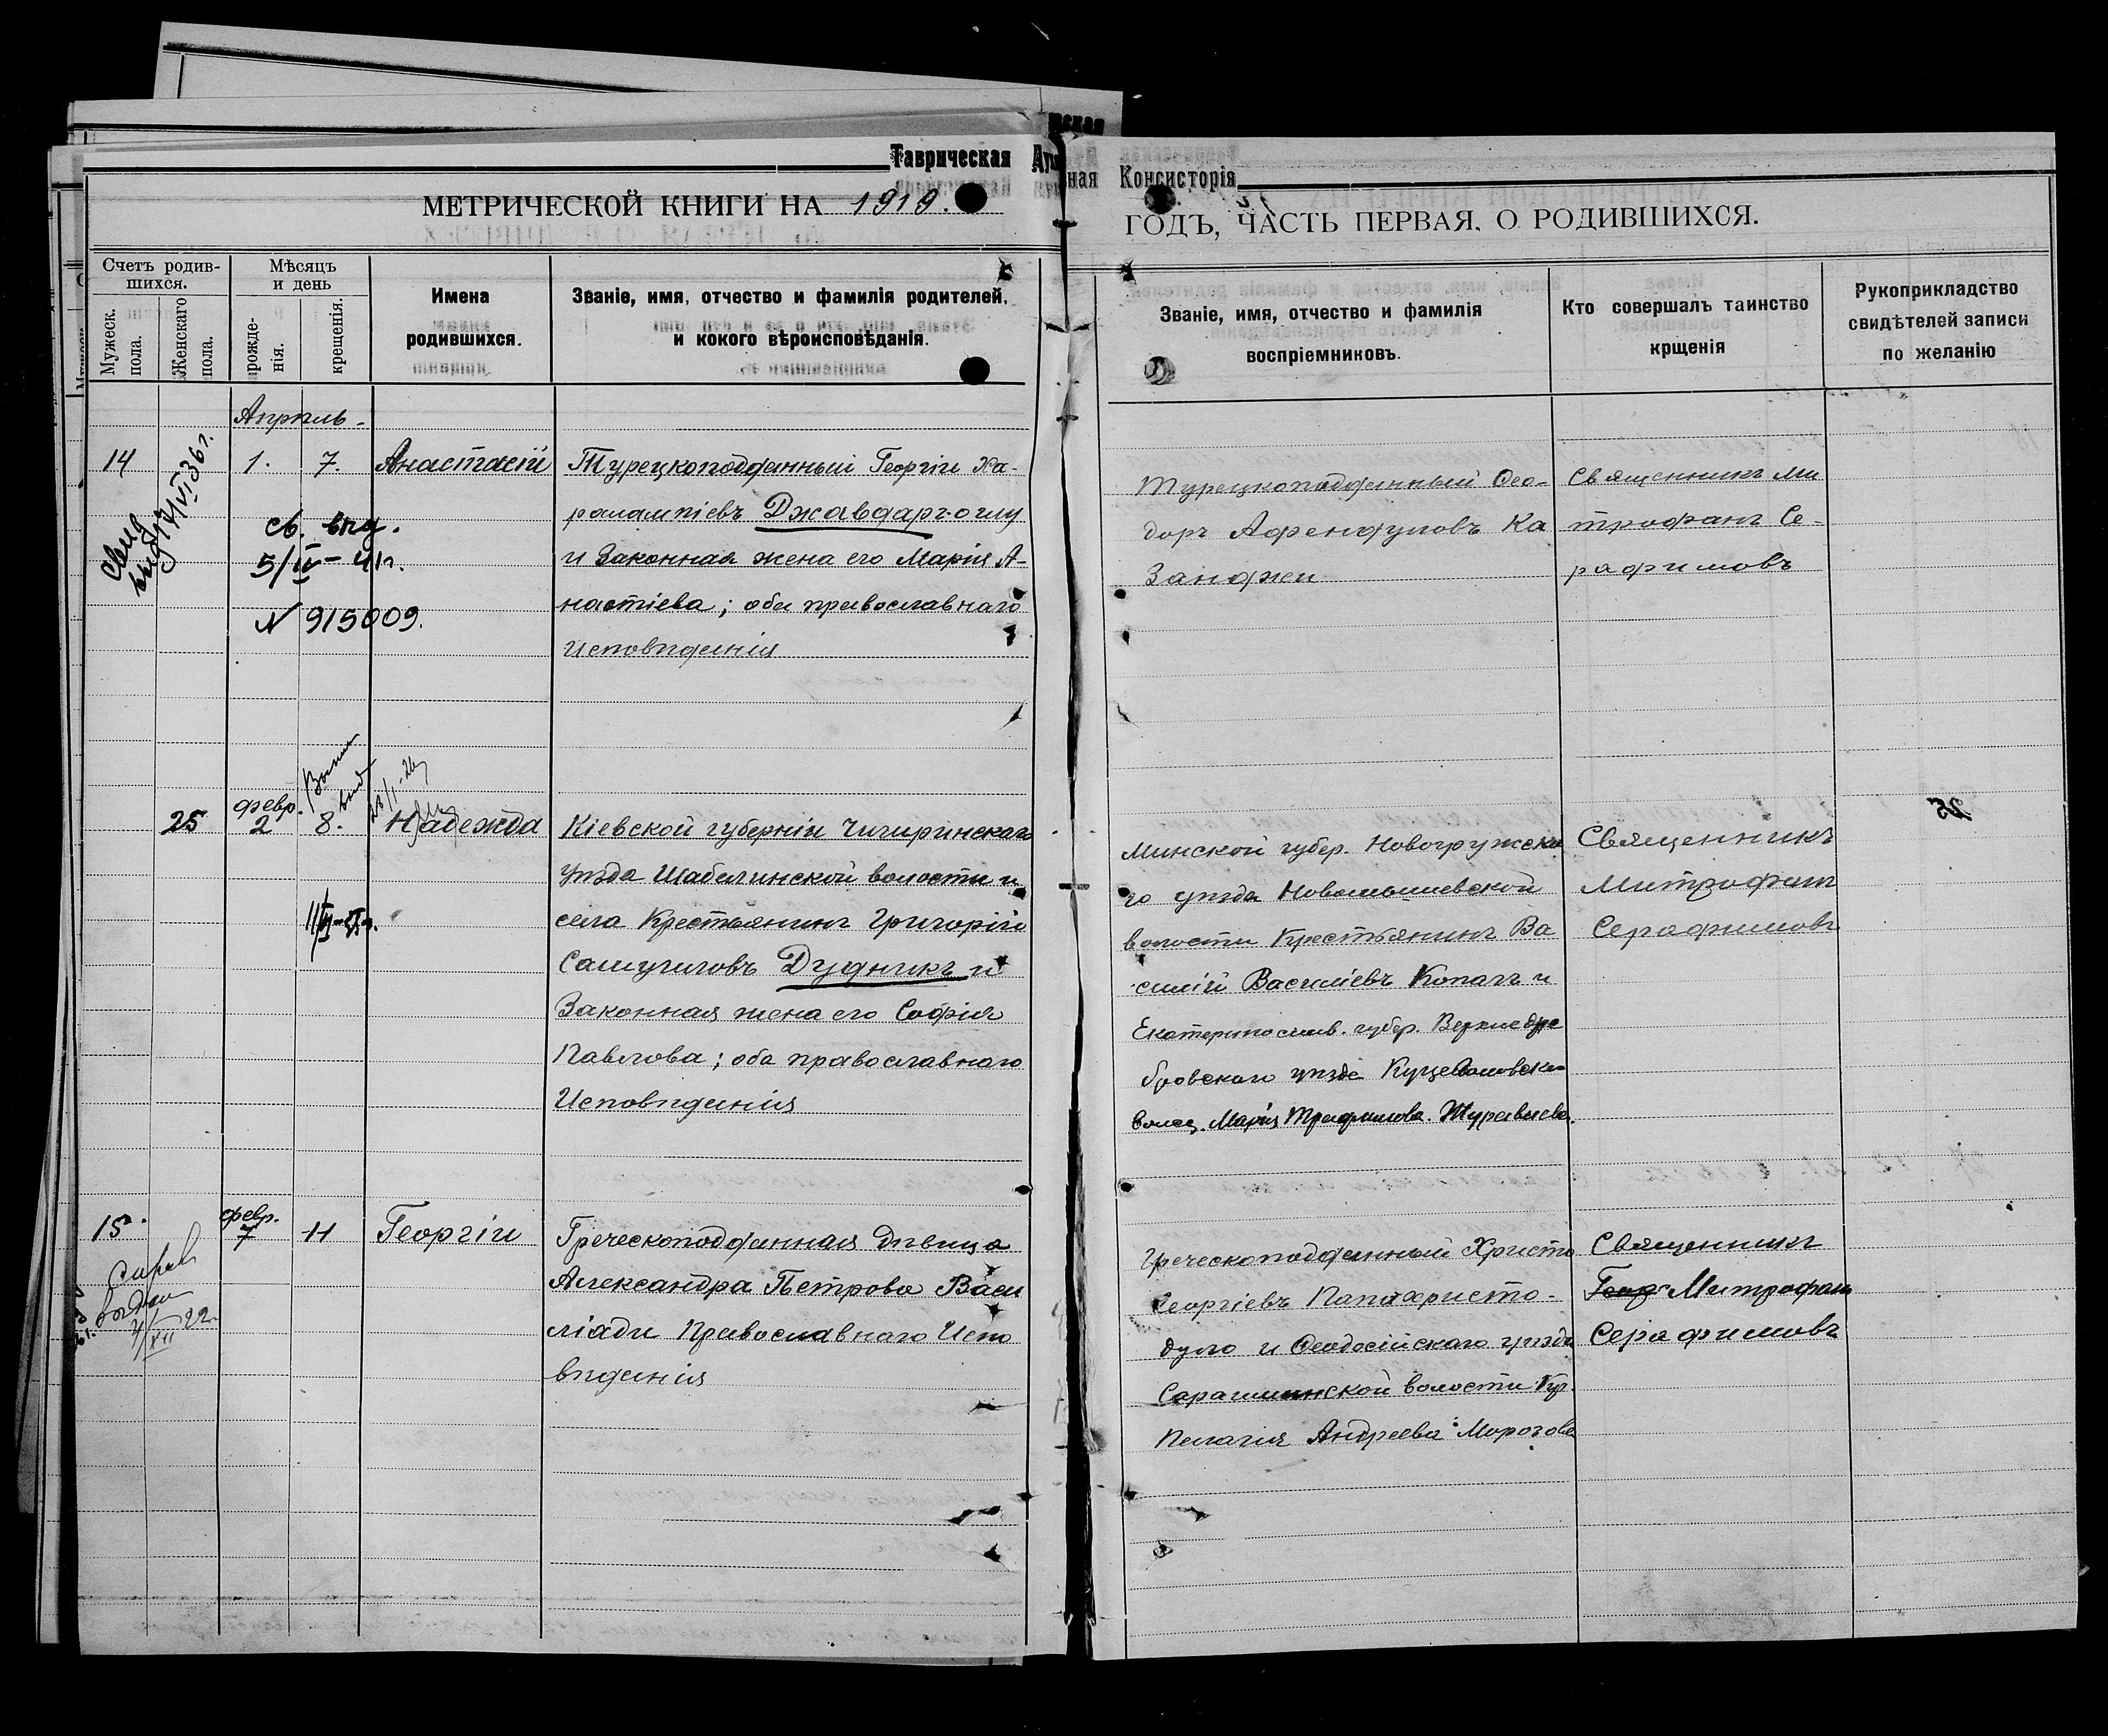 Таврическая
ная Консисторія
МЕТРИЧЕСКОЙ КНИГИ НА 1919.
ГОДЪ, ЧАСТЬ ПЕРВАЯ, О РОДИВШИХСЯ.
Счетъ родив-
шихся.
Мужеск.
пола.
Женскаго
пола.
Мѣсяцъ
и день
рожде-
нія.
крещенія.
Имена
родившихся.
Званіе, имя, отчество и фамилія родителей,
и кокого вѣроисповѣданія.
Званіе, имя, отчество и фамилія
воспріемниковъ.
Кто совершалъ таинство
крщенія
Рукоприкладство
свидѣтелей записи
по желанію
Апрѣль
14
1. 7.
Анастасій
Турецкоподданный Георгій Ха-
рлампіевъ Джавдаръ-оглу
и Законная жена его Марія А-
настіева; оба православнаго
Исповѣданія
свид
выд 7/VI 36 г.
св. выд.
5/IV - 41г.
N 915009.
Турецкоподданный Ѳео-
доръ Афендуловъ Ка
занджи
Священникъ Ми
трофанъ Се-
рафимовъ
25
февр.
2 8.
Надежда
Кіевской губерніи Чигиринскаго
уѣзда Шабелинской волости и
села Крестьянинъ Григорій
Самуиловъ Дудникъ и
Законная жена его Софія
Павлова; оба православнаго
Исповѣданія
Минской губер. Новогружска
го уѣзда Новомышевской
волости Крестьянинъ Ва
силій Василіевъ Копачъ и
Екатеринослав. губер. Верхнедне
бровскаго уѣзда
волос. Марія Трофимова Журавлева.
Священникъ
Митрофанъ
Серафимовъ
15
февр.
7 11
Георгій
Греческоподданная дѣвица
Александра Петрова Васи
ліади Православнаго Испо
вѣданія
Греческоподданный Христо
Георгіевъ Папахристо-
дуло и Ѳеодосійскаго уѣзда
волости Кр.
Пелагія Андреева Морозова
Священникъ
Геор Митрофанъ
Серафимовъ